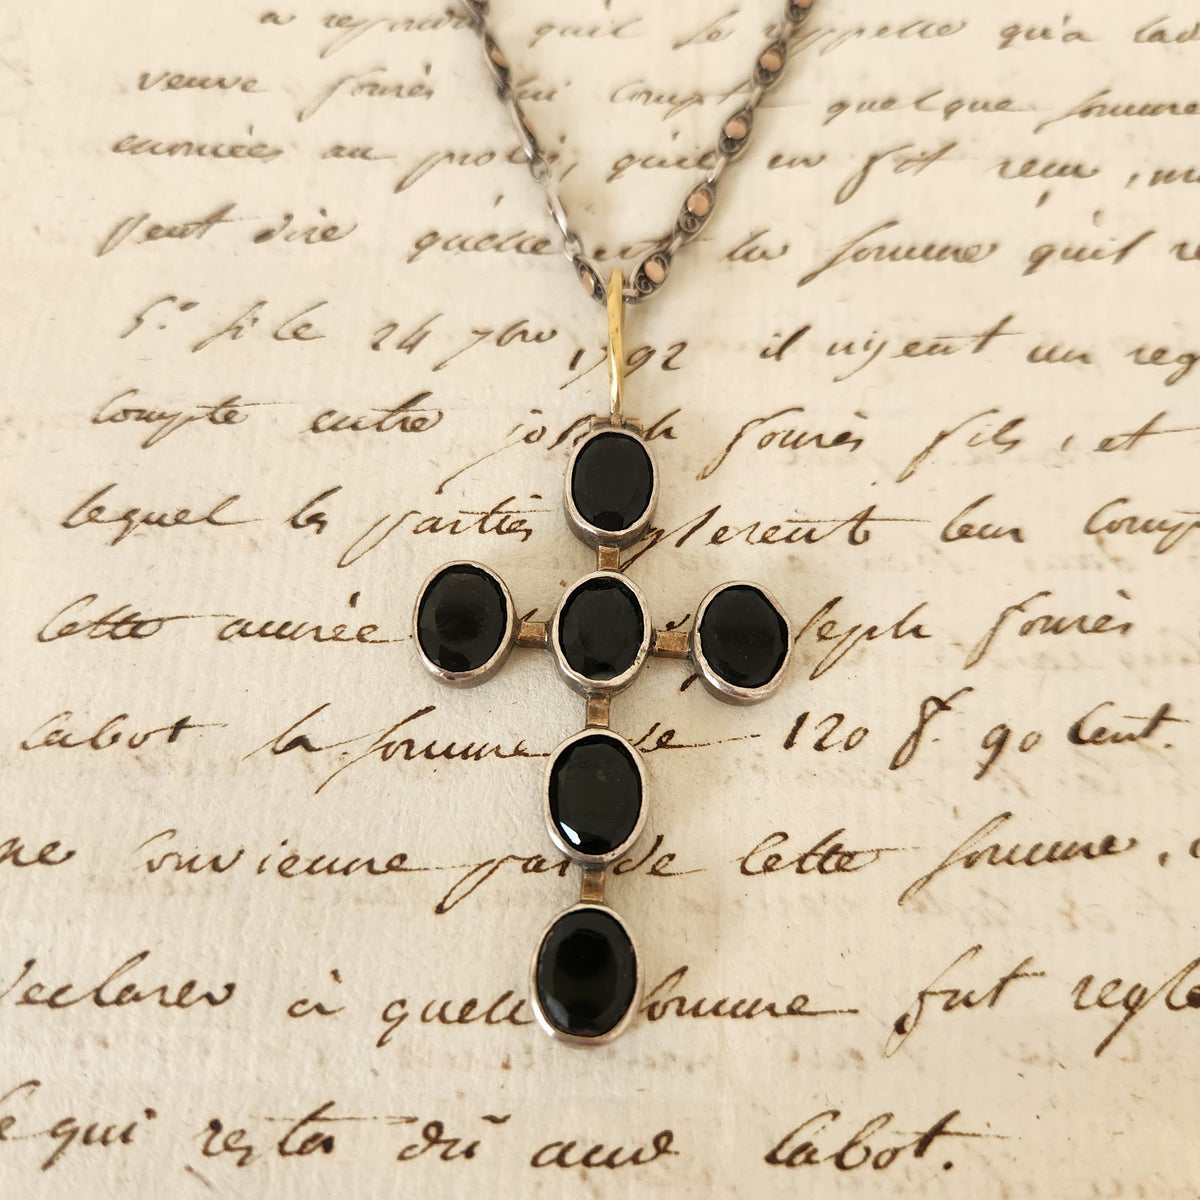 a repondre quil se rappelle qu'a
veuve fouriés lui compta quelque somme
au procés, quil en fit recu,
peut dire quelle est la somme quil
5.° si le 24 7bre 1792 il nyent un reg
compte entre joseph fouriés fils, et
lequel les parties reglerent leur comp
cette année joseph fouriés
cabot la somme de 120 f. 90 cent.
ne convienne pas de cette somme,
declarer à quelle somme fut regle
qui resta dû aud cabot.